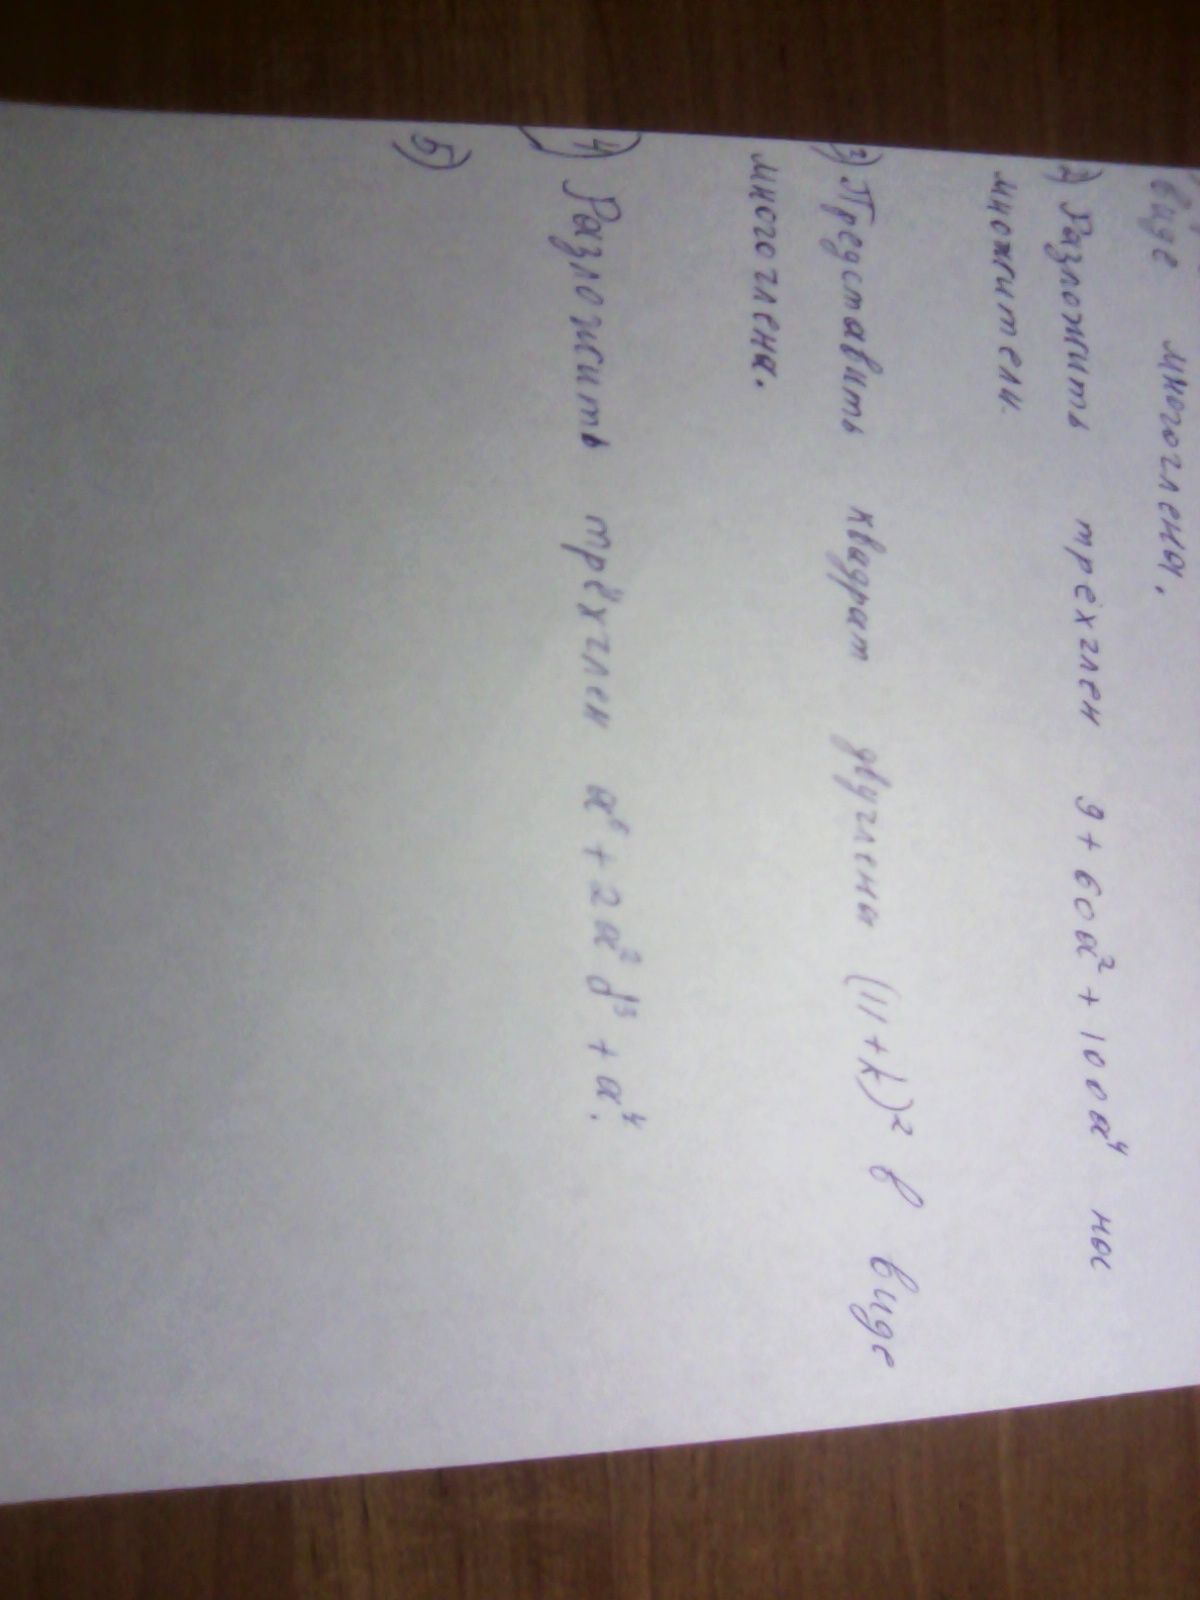 виде многочлены.
2) Разложить трёхчлен 9 + 60a² + 100a⁴ на
множители.
3) Представить квадрат двучлены (11 + k)² в виде
многочлена.
4) Разложить трёхчлен a⁶ + 2a²d³ + a⁴.
5)